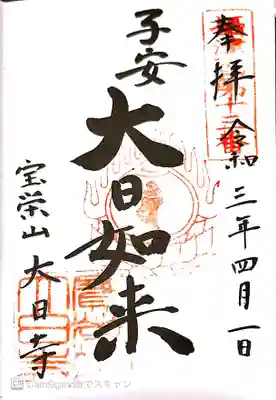 奉拝
令和三年四月一日
子安
大日如来
宝栄山大日寺
CamScannerでスキャン